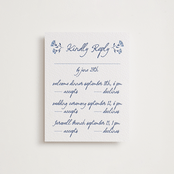 Kindly Reply
by june 20th
welcome dinner september 10th, 6 pm
accepts declines
wedding ceremony september 12, 6 pm
accepts declines
farewell brunch september 13, 1 pm
accepts declines